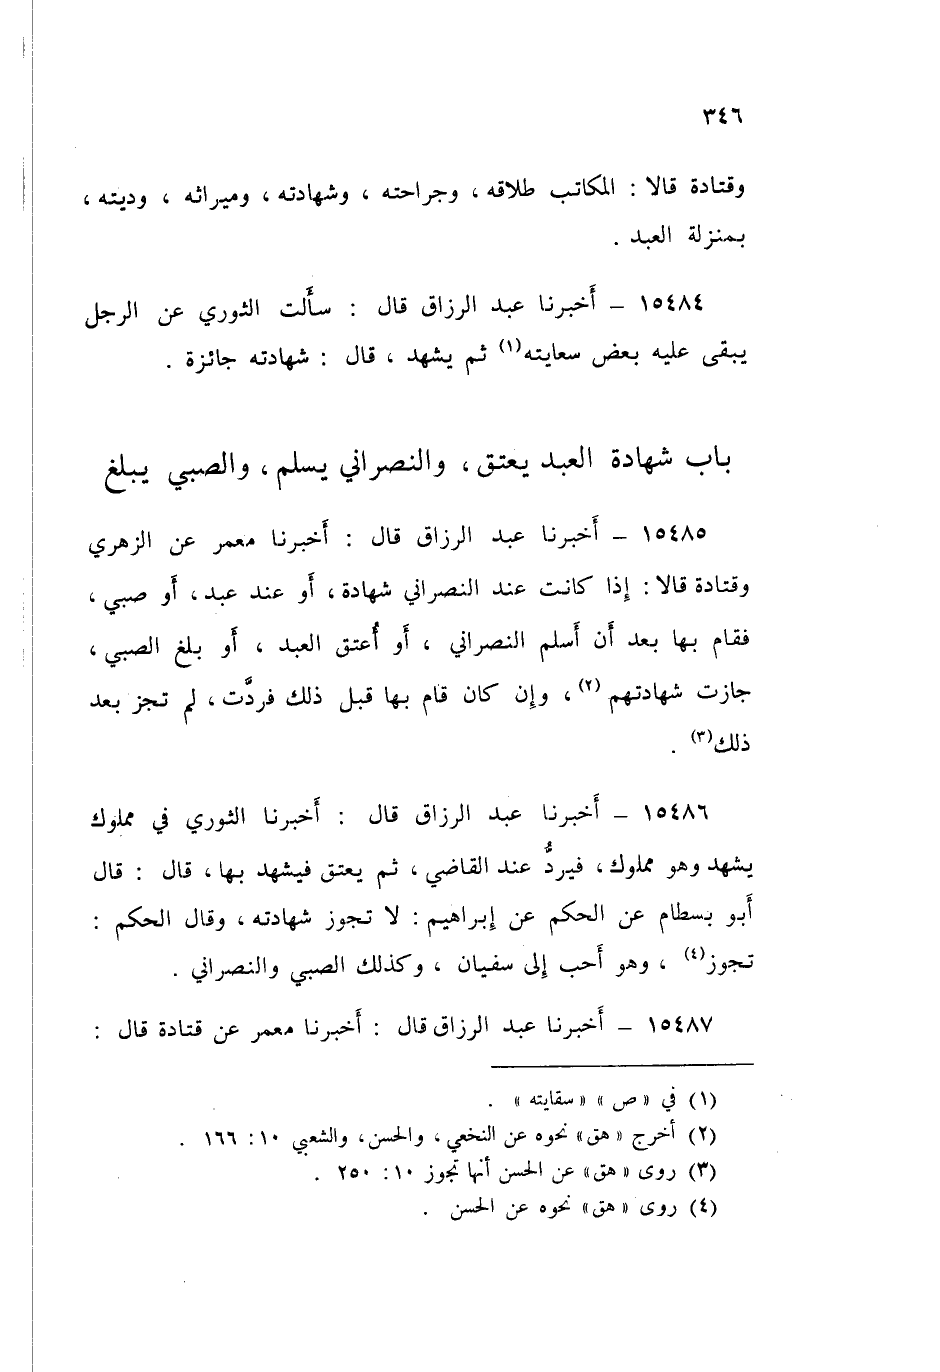 ٣٤٦
وقتادة قالا : المكاتب طلاقه ، وجراحته ، وشهادته ، وميراثه ، وديته ،
بمنزلة العبد .
١٥٤٨٤ – أَخبرنا عبد الرزاق قال : سأَلت الثوري عن الرجل
يبقى عليه بعض سعايته(١) ثم يشهد ، قال : شهادته جائزة .
باب شهادة العبد يعتق ، والنصراني يسلم ، والصبي يبلغ
١٥٤٨٥ – أَخبرنا عبد الرزاق قال : أَخبرنا معمر عن الزهري
وقتادة قالا : إِذا كانت عند النصراني شهادة ، أَو عند عبد ، أَو صبي ،
فقام بها بعد أَن أَسلم النصراني ، أَو أُعتق العبد ، أَو بلغ الصبي ،
جازت شهادتهم (٢) ، وإِن كان قام بها قبل ذلك فردَّت ، لم تجز بعد
ذلك(٣) .
١٥٤٨٦ – أَخبرنا عبد الرزاق قال : أَخبرنا الثوري في مملوك
يشهد وهو مملوك ، فيردُّ عند القاضي ، ثم يعتق فيشهد بها ، قال : قال
أَبو بسطام عن الحكم عن إِبراهيم : لا تجوز شهادته ، وقال الحكم :
تجوز(٤) ، وهو أَحب إِلى سفيان ، وكذلك الصبي والنصراني .
١٥٤٨٧ – أَخبرنا عبد الرزاق قال : أَخبرنا معمر عن قتادة قال :
(١) في « ص » « سقايته » .
(٢) أخرج « هق » نحوه عن النخعي ، والحسن ، والشعبي ١٠ : ١٦٦ .
(٣) روى « هق » عن الحسن أنها تجوز ١٠ : ٢٥٠ .
(٤) روى « هق » نحوه عن الحسن .